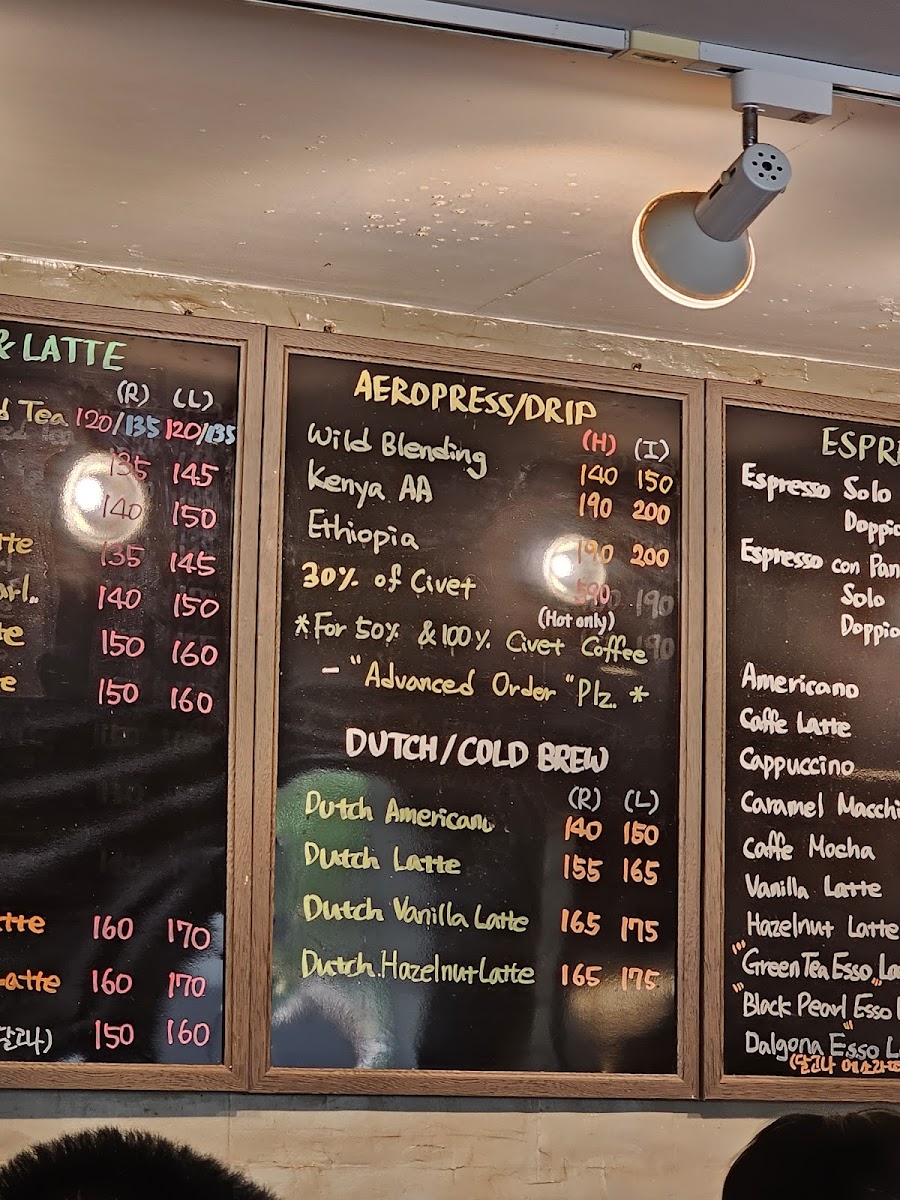 & LATTE
(R) (L)
d Tea 120/135 120/135
135 145
140 150
tte 135 145
arl.. 140 150
te 150 160
e 150 160
tte 160 170
Latte 160 170
달고나) 150 160
AEROPRESS/DRIP
(H) (I)
Wild Blending 140 150
Kenya AA 190 200
Ethiopia 190 200
30% of Civet 590
(Hot only)
*For 50% & 100% Civet Coffee
- "Advanced Order "Plz. *
DUTCH/COLD BREW
(R) (L)
Dutch Americano 140 150
Dutch Latte 155 165
Dutch Vanilla Latte 165 175
Dutch Hazelnut Latte 165 175
ESPRE
Espresso Solo
Doppio
Espresso con Pan
Solo
Doppio
Americano
Caffe Latte
Cappuccino
Caramel Macchi
Caffe Mocha
Vanilla Latte
Hazelnut Latte
"Green Tea Esso" La
"Black Pearl" Esso L
Dalgona Esso L
(달고나 에소라떼